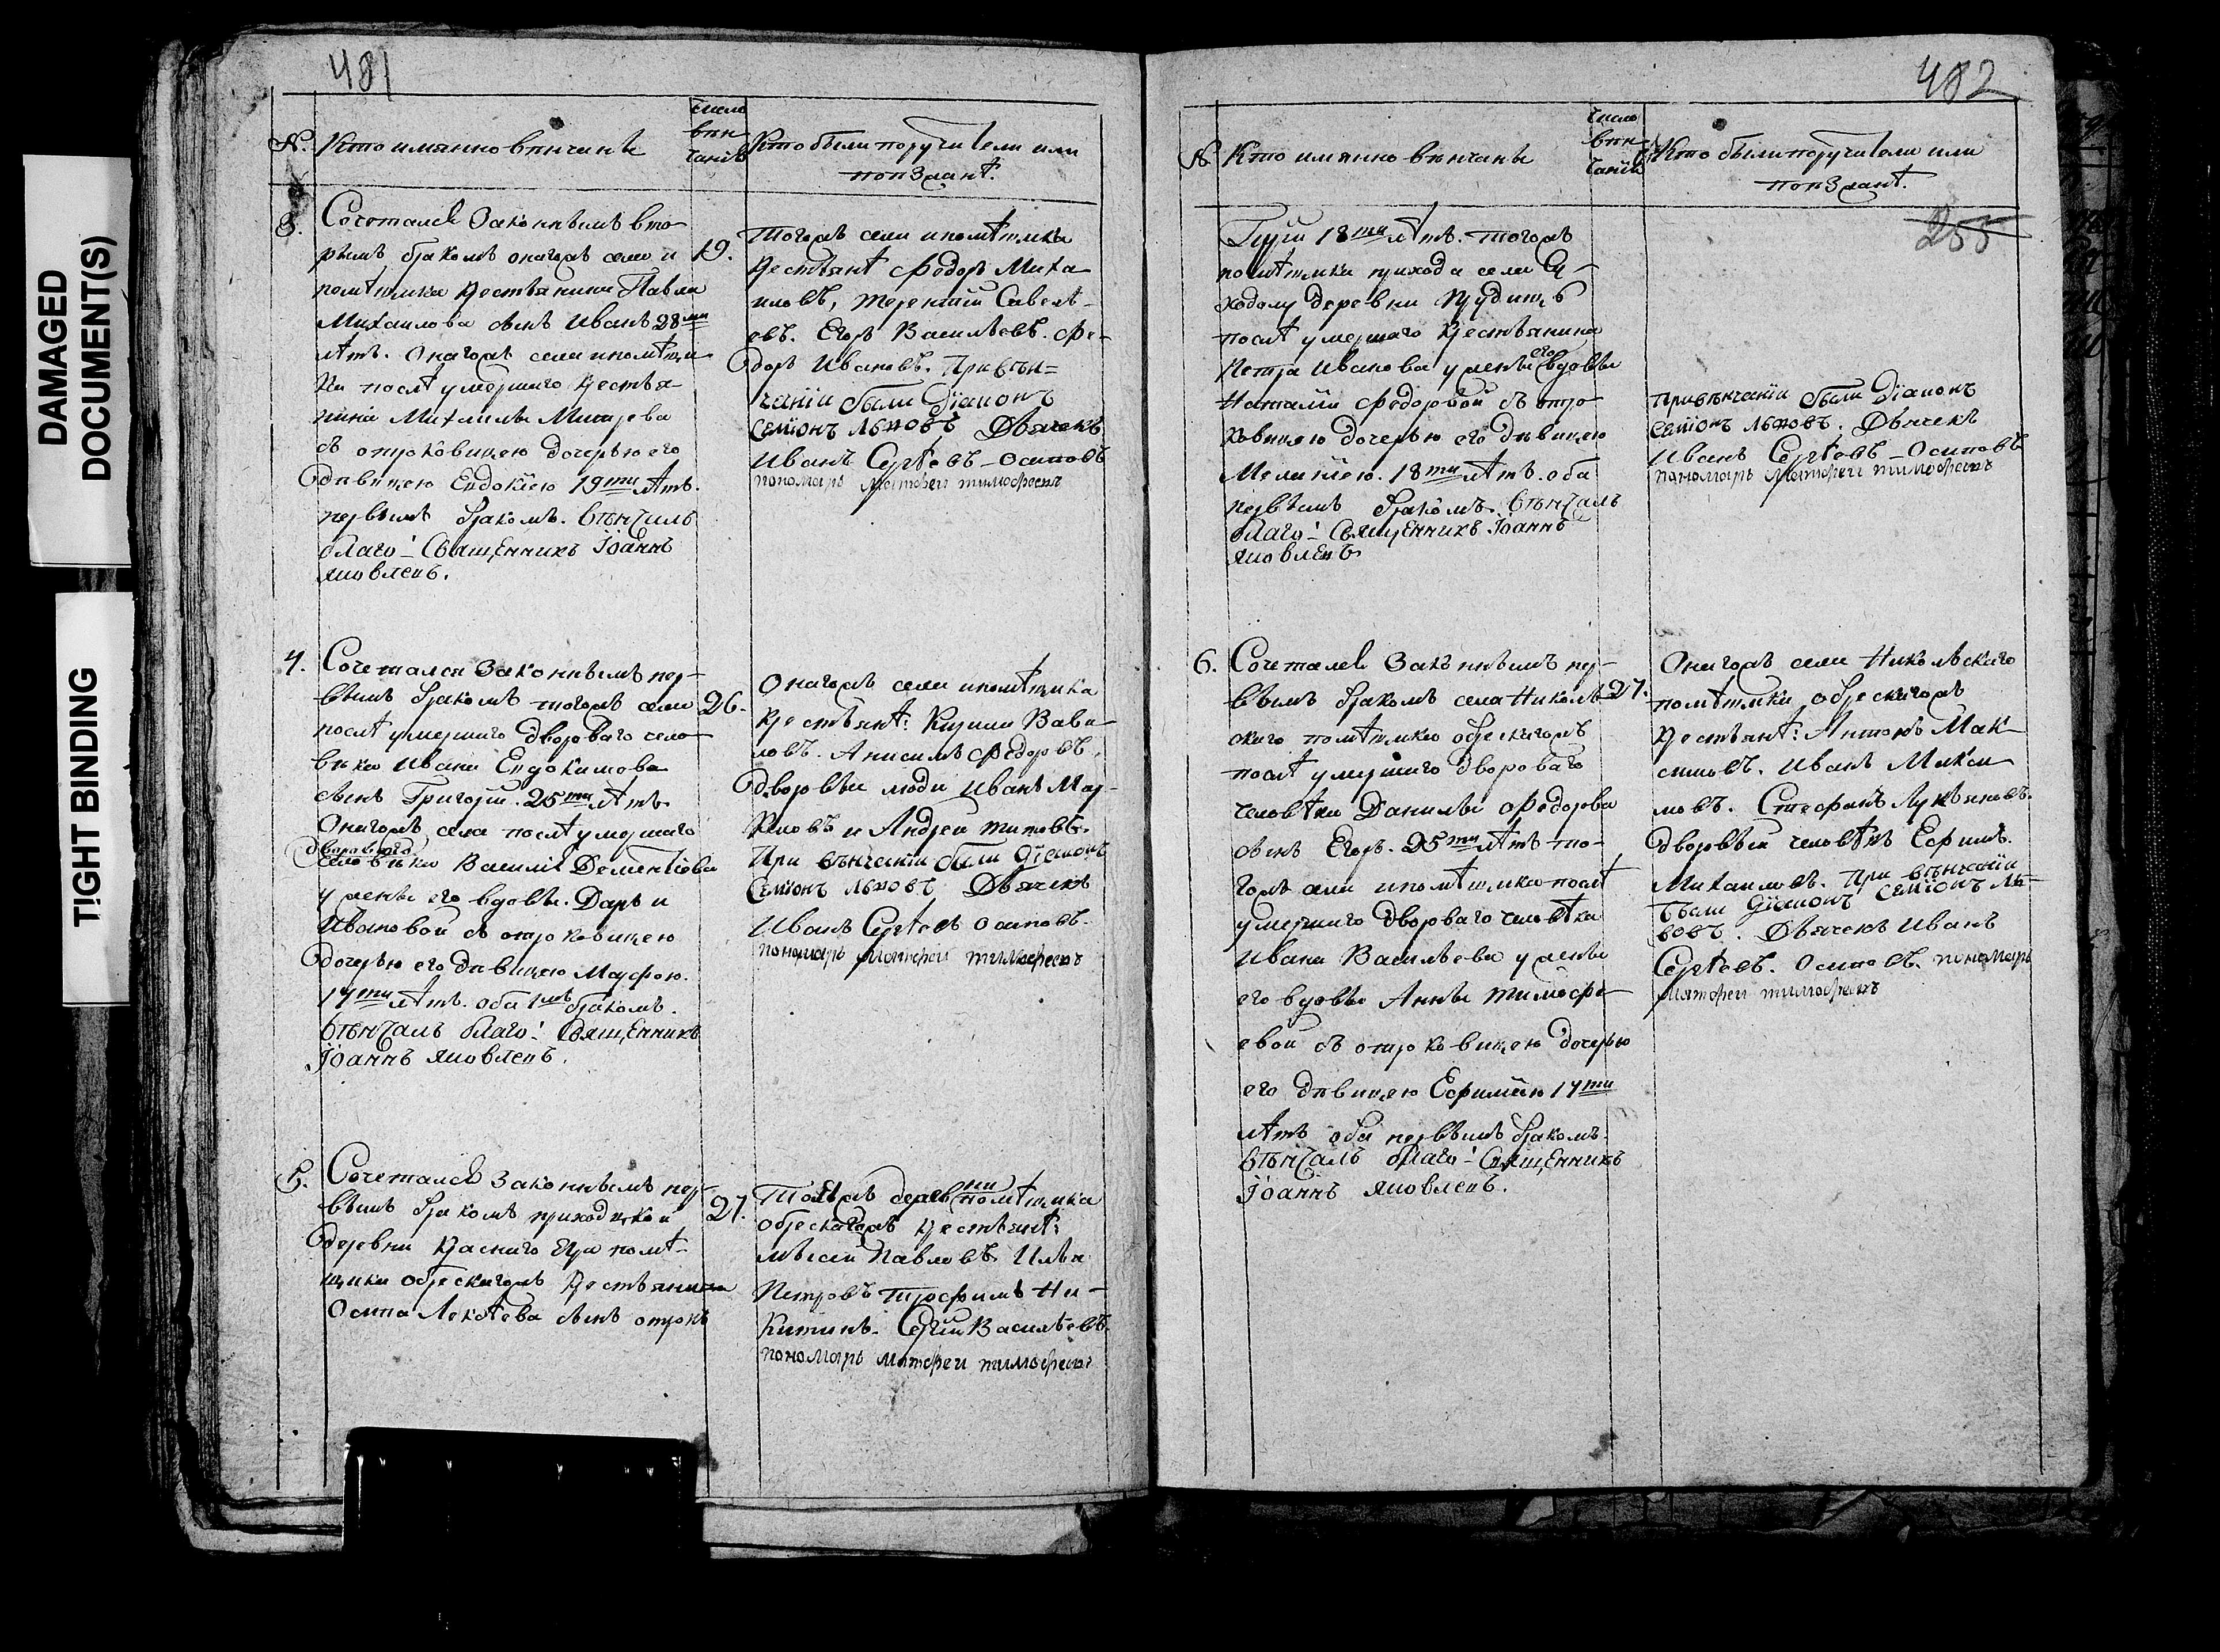 DAMAGED
DOCUMENT(S)
TIGHT BINDING
481
№. Кто имянно венчанъ
число
вѣн-
чанія
Кто были поручители или
поѣзжанѣ.
3. Сочетался Законнымъ вто-
рымъ бракомъ онагожъ села и
помѣщика крестьянина Павла
Михаилова сынъ Иванъ 28ми
лѣтъ. Онагожъ села и помѣщи-
ка послѣ умершаго крестья-
нина Михаилы
съ отроковицею дочерью его
дѣвицею Евдокіею 19ти лѣтъ.
первымъ бракомъ. вѣнчалъ
благо: Священникъ Іоаннъ
Яковлевъ.
19.
Тогожъ села и помѣщика
крестьянѣ Федоръ Миха-
иловъ, Терентий Савель-
евъ. Егоръ Васильевъ. Фе-
доръ Ивановъ. При вѣн=
чаніи были Діаконъ
Семіонъ Львовъ Дьячекъ
Иванъ Сергѣевъ Осиповъ
пономарь Матфеи тимофеевъ
4. Сочетался Законнымъ пер-
вымъ бракомъ тогожъ села
послѣ умершаго двороваго чело-
вѣка Ивана Евдокимова
сынъ Григорій. 25ти лѣтъ.
Онагожъ села послѣ умершаго
двороваго
человѣка Василія Дементіева
у жены его вдовы. Дарьи
Ивановой съ отроковицею
дочерью его дѣвицею Марфою.
17ти лѣтъ. оба 1мъ бракомъ.
вѣнчалъ благо: Священникъ
Іоаннъ Яковлевъ.
26.
Онагожъ села и помѣщика
крестьянѣ: Вави-
ловъ. Анисимъ Федоровъ,
дворовыи люди Иванъ Мар-
ковъ и Андреи Титовъ.
При вѣнчаніи были Діаконъ
Семіонъ Львовъ Дьячекъ
Иванъ Сергѣевъ Осиповъ.
пономарь Матфеи тимофеевъ
5. Сочетался Законнымъ пер-
вымъ бракомъ приходской
деревни Краснаго помѣ-
щика обрескагожъ крестьянина
Осипа сынъ отрокъ
27.
Тоѣжъ деревни помѣщика
обрескагожъ крестьянѣ:
Павловъ Илья
Петровъ Трофимъ Ни-
китинъ. Сергіи Васильевъ.
пономарь Матфеи тимофеевъ
482
№ Кто имянно вѣнчанъ
число
вѣн-
чанія
Кто были поручители или
поѣзжанѣ.
255
18ти лѣтъ. тогожъ
помѣщика прихода села
ходолу деревни Прудищъ
послѣ умершаго крестьянина
Петра Иванова у жены его вдовы
Наталіи Федоровой съ отро-
ковицею дочерью его дѣвицею
18ти лѣтъ. оба
первымъ бракомъ. вѣнчалъ
благо: Священникъ Іоаннъ
Яковлевъ
При вѣнчаніи были Діаконъ
Семіонъ Львовъ. Дьячекъ
Иванъ Сергѣевъ Осиповъ
пономарь Матфеи тимофеевъ
6. Сочетался Законнымъ пер-
вымъ бракомъ села Николь-
скаго помѣщика обрескагожъ
послѣ умершаго двороваго
человѣка Данилы Федорова
сынъ Егоръ. 25ти лѣтъ то-
гожъ села и помѣщика послѣ
умершаго двороваго человѣка
Ивана Васильева у жены
его вдовы Анны Тимофе-
евой съ отроковицею дочерью
его дѣвицею Ефиміею 17ти
лѣтъ оба первымъ бракомъ.
вѣнчалъ благо: Священникъ
Іоаннъ Яковлевъ.
27.
Онагожъ села Никольскаго
помѣщика обрескагожъ
крестьянѣ: Антонъ Мак-
симовъ. Иванъ Макси-
мовъ. Стефанъ Лукьяновъ.
дворовыи человѣкъ Ефимъ.
Михаиловъ. При вѣнчаніи
были Діаконъ Семіонъ Ль-
вовъ. Дьячекъ Иванъ
Сергѣевъ. Осиповъ. пономарь
Матфеи тимофеевъ